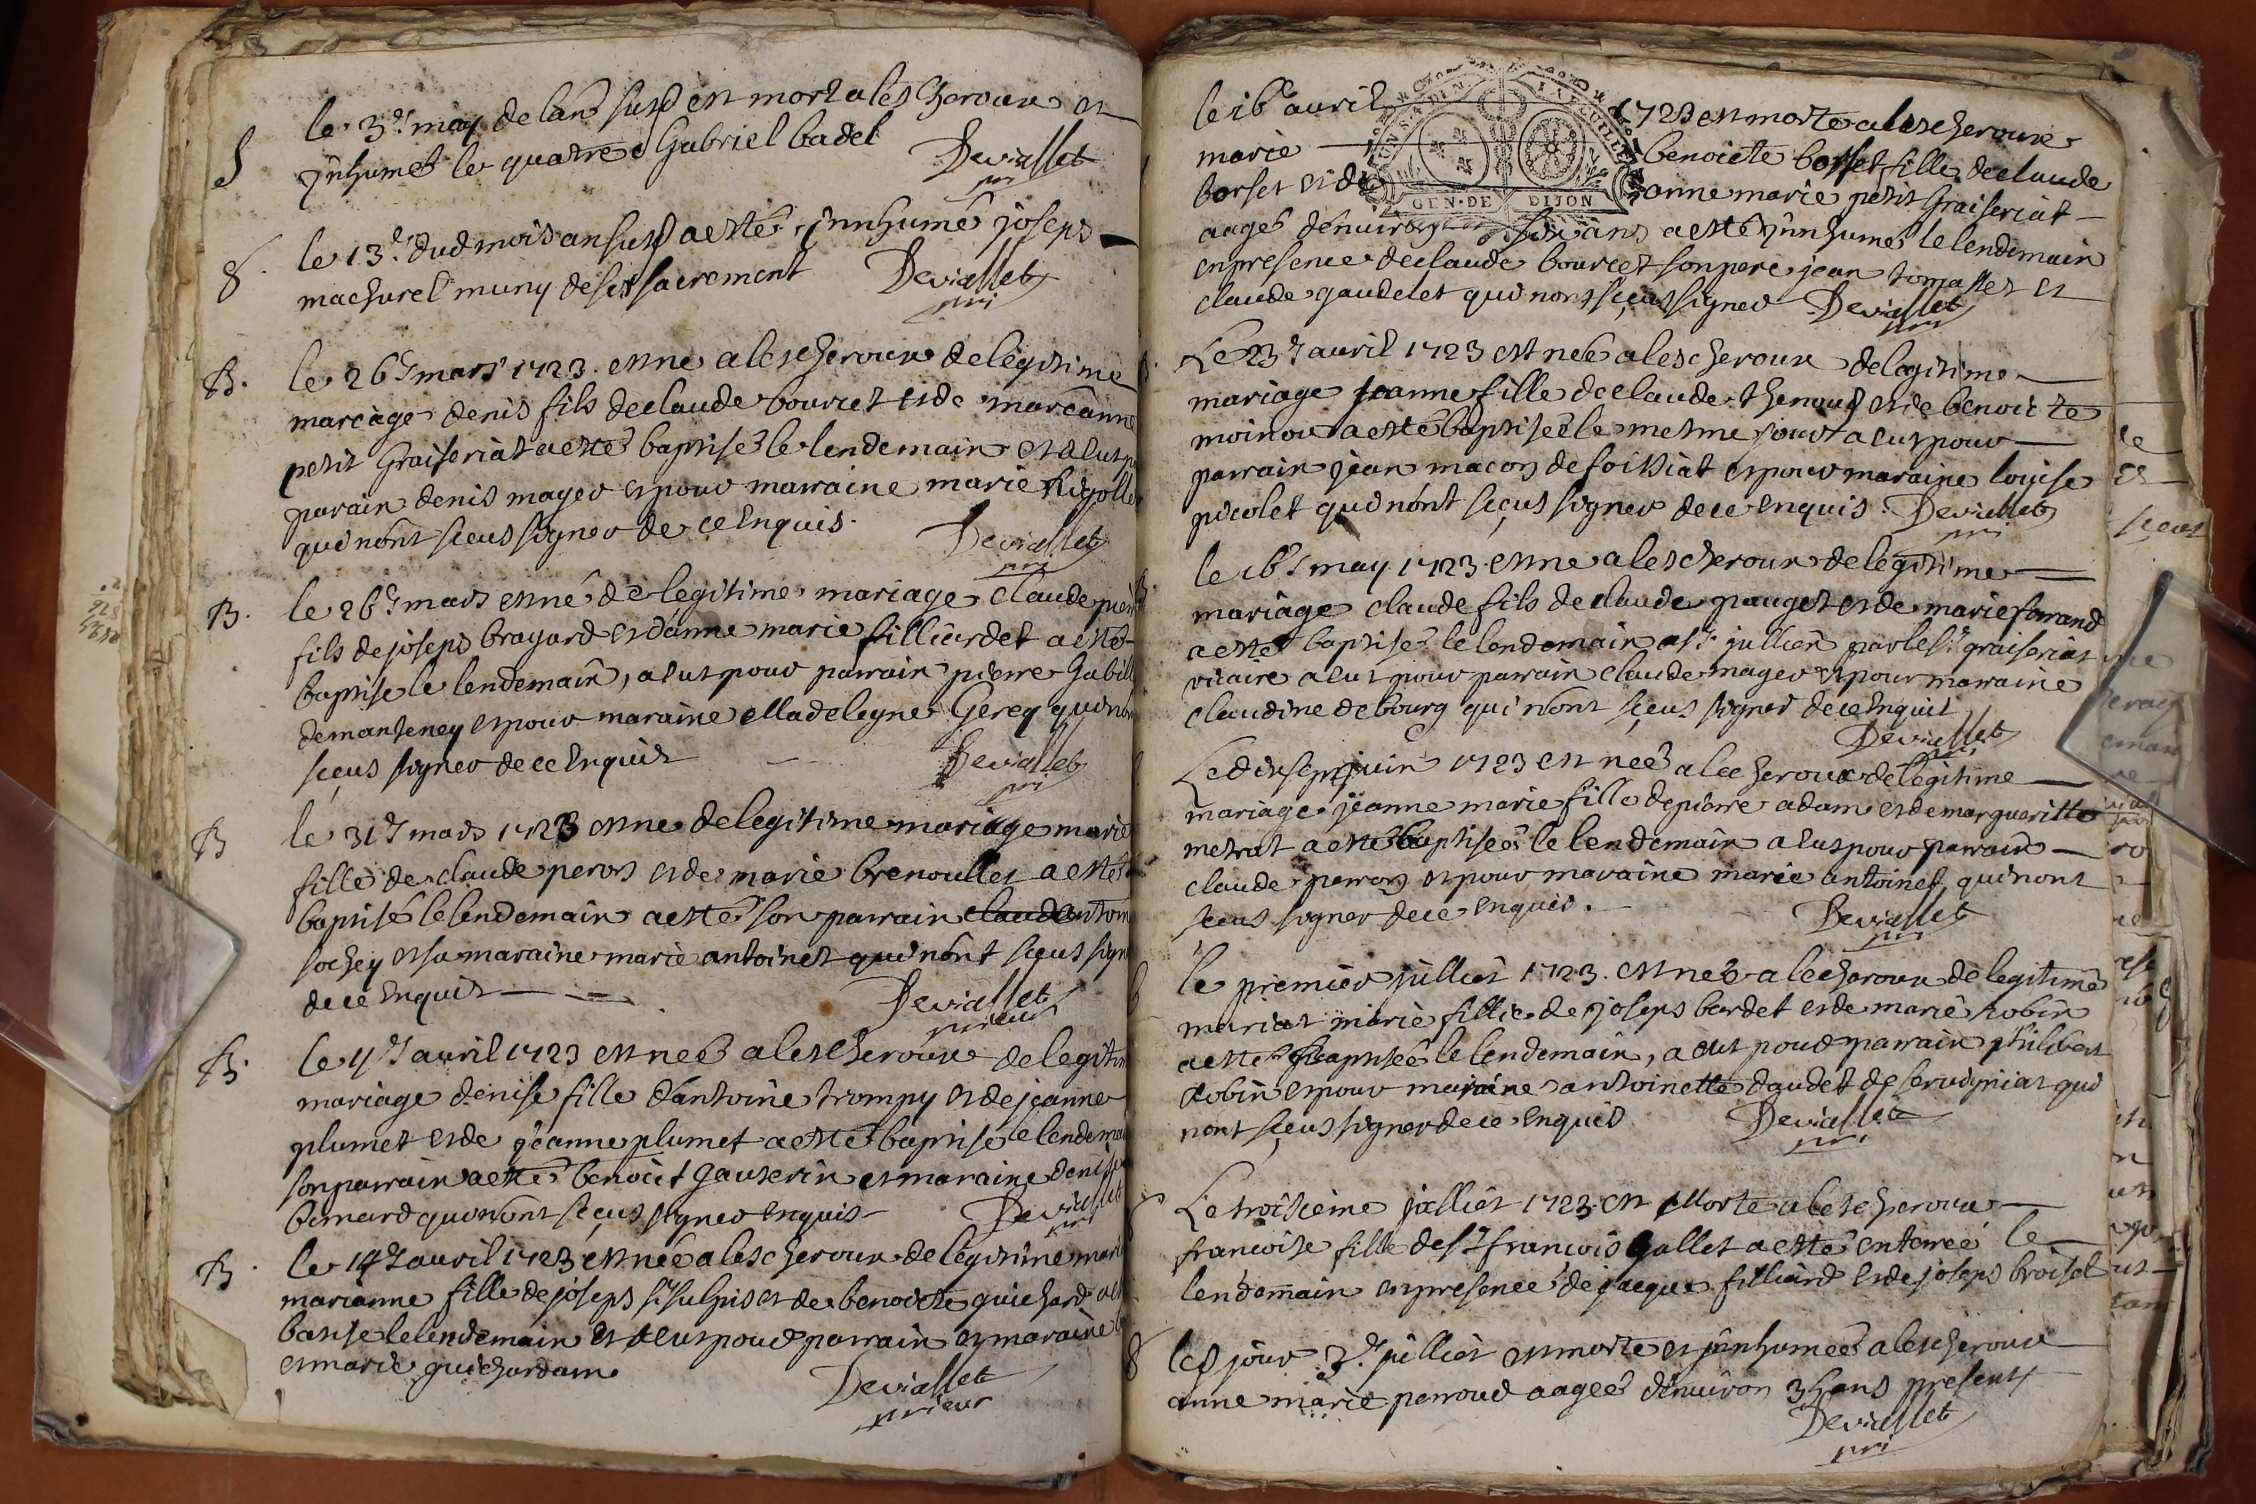 le 3e may de lan susd est mort a lescheroux et
S
jnhumé le quatre Gabriel badel
Deviallet
pri
le 13e dud mois an susd a esté jnnhumé joseps
S
machurel muny de ses sacrement
Deviallet
pri
B. le 26e mars 1723. est né a lescheroux de legitime
mareage denis fils de claude bourcet et de mareanne
petit Graiseriat a esté baptisé le lendemain et a eut p
parain denis mageo et pour marraine marie Rigollet
qui nont sceus signer de ce Enquis.
Deviallet
pri
B. le 26e mars est né de legitime mariage Claude pierre
fils de joseps brayard et danne marie filliardet a esté
baptise le lendemain, a eut pour parrain pierre Gabill
de manteney et pour maraine Madelegne Gerey qui nont
sceus signer de ce Enquis
Deviallet
pri
B le 31e mars 1723 est né de legitime mariage marie
fille de claude peron et de marie brenoullet a esté
baptisé le lendemain a esté son parrain claude antoin
sochey et sa maraine marie antoinet qui nont sceus sign
de ce Enquis
Deviallet
prieur
B. le 4e avril 1723 est neé a lescheroux de legitim
mariage denise fille dantoine trompy et de jeanne
plumet et de jeanne plumet a esté baptisé le lendemain
son parrain a esté benoict Gauterin et maraine denise
bernard qui nont sceus signer enquis
Deviallet
pri
B. le 14e avril 1723 est neé a lescheroux de legitime mari
marianne fille de joseps st sulpis et de benoicte guichard a es
batise le lendemain et a eut pour parrain et maraine
et marie guichardam
Deviallet
prieur
le 16e avril 1723 est morte a lescheroux
marie benoicte borset fille de claude
borset et de anne marie petit Graiseriat
aagé denviron six ans a esté jnnhumé le lendemain
GEN · DE DIJON
en presence de claude bourcet son pere jean tomasset et
claude gaudelet qui nont sceus signer Deviallet
pri
Le 23e avril 1723 est neé a lescheroux de legitime
mariage jeanne fille de claude thenoud et de benoicte
moinoud a esté baptiseé le mesme jour a eut pour
parrain jean macon de foissiat et pour maraine louise
picolet qui nont sceus signer de ce enquis Deviallet
pri
le 16e may 1723 est né a lescheroux de legitime
mariage claude fils de claude pauget et de marie farand
a esté baptisé le lendemain a st jullien par le sr graiseriat
vicaire a eut pour parrain claude mageo et pour marraine
claudine debourg qui nont sceus signer de ce Enquis
Deviallet
pri
Le dixsept juin 1723 est neé a lecheroux de legitime
mariage jeanne marie fille de pierre adam et de margueritte
metrat a esté baptiseé le lendemain a eut pour parrain
claude perron et pour maraine marie antoinet qui nont
sceus signer de ce Enquis.
Deviallet
pri
le premier julliet 1723. est neé a lecheroux de legitime
mariat marie fillie de joseps bardet et de marie Robin
a esté baptiseé le lendemain, a eut pour parrain philibert
Robin et pour maraine antoinette daudet de servigniat qui
nont sceus signer de ce Enquis
Deviallet
pri
Le troisieme julliet 1723. est Morte a lescheroux
francoise fille de sr francois Gallet a esté enterreé le
lendemain en presence de jacque filliard et de joseps broiset
le d jour 3e julliet est morte et jnnhumeé a lescheroux
anne marie perroud aageé denviron 35 ans presents
Deviallet
pri